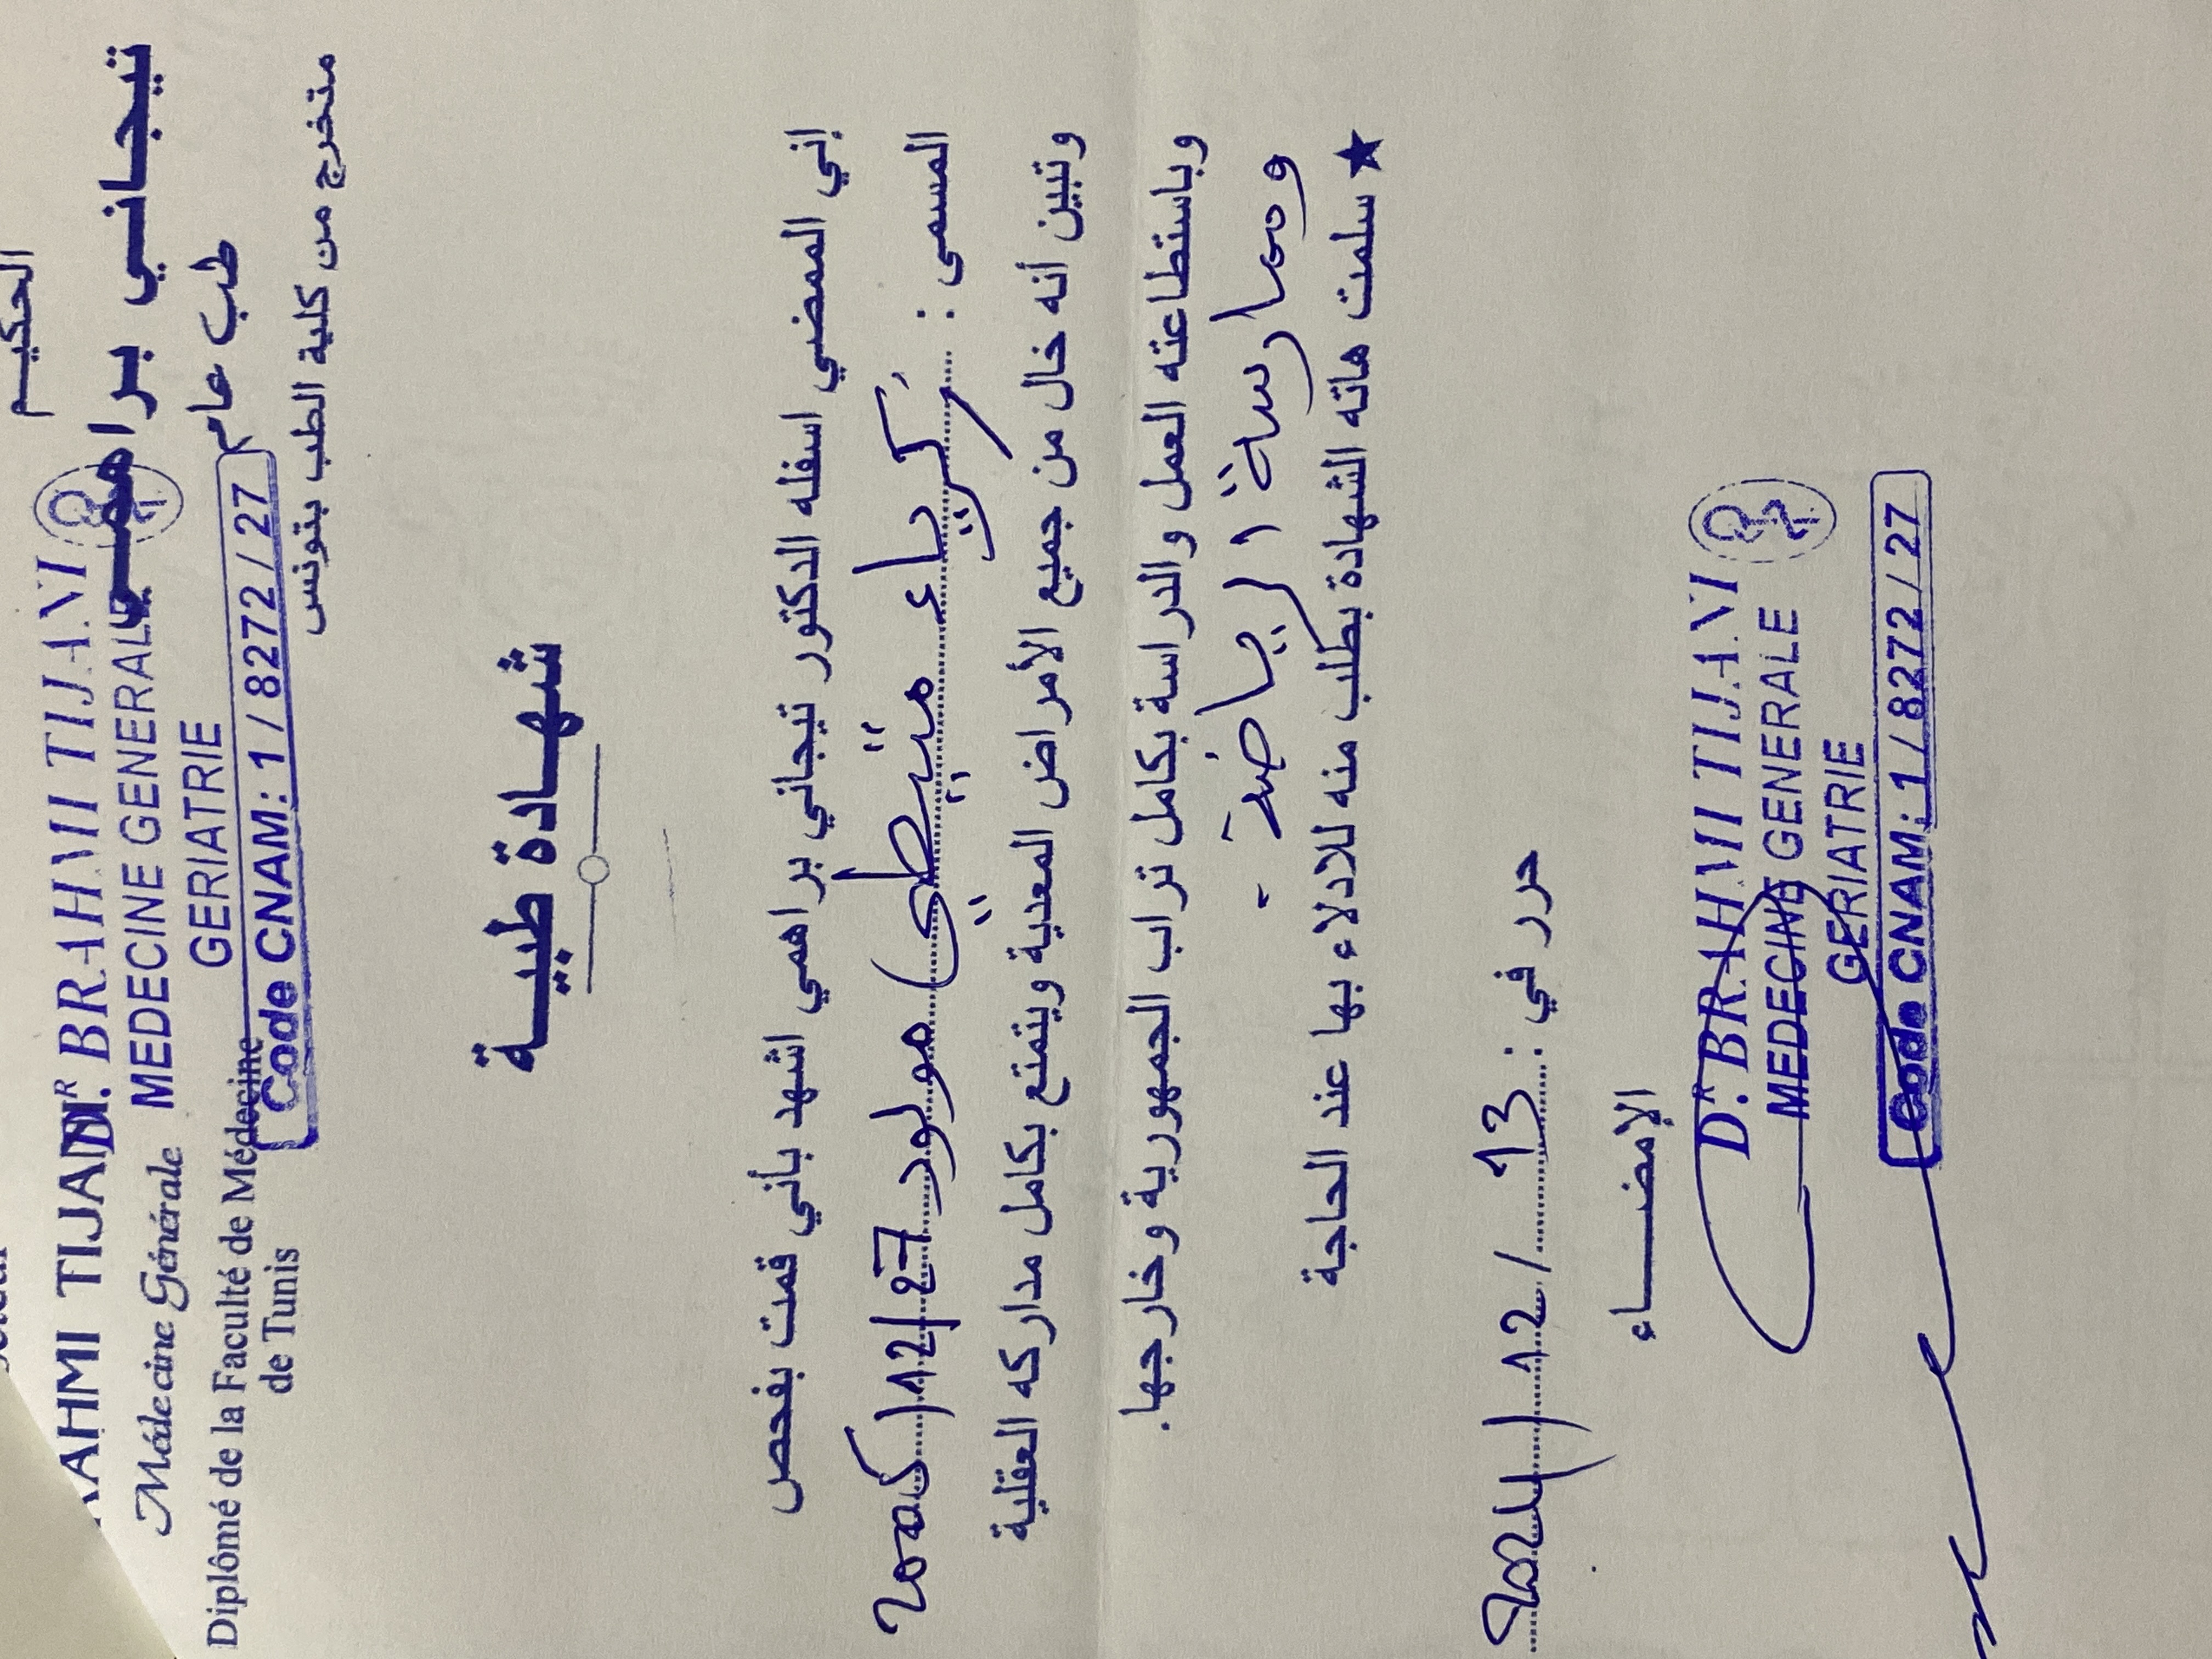 الحكيم
تيجاني براهمي
طب عام
متخرج من كلية الطب بتونس
AHMI TIJA
Médecine Générale
Diplômé de la Faculté de Médecine
de Tunis
DR. BRAHMI TIJANI
MEDECINE GENERALE
GERIATRIE
Code CNAM: 1 / 8272 / 27
شهادة طبية
إني الممضي اسفله الدكتور تيجاني براهمي اشهد بأني قمت بفحص
المسمى : زكرياء مولود 27/12/2005
وتبين أنه خال من جميع الأمراض المعدية ويتمتع بكامل مداركه العقلية
وباستطاعته العمل والدراسة بكامل تراب الجمهورية وخارجها.
وممارسة الرياضة -
★ سلمت هاته الشهادة بطلب منه للادلاء بها عند الحاجة
حرر في : 13 / 12 / 2024
الإمضاء
DR. BRAHMI TIJANI
MEDECINE GENERALE
GERIATRIE
Code CNAM: 1 / 8272 / 27